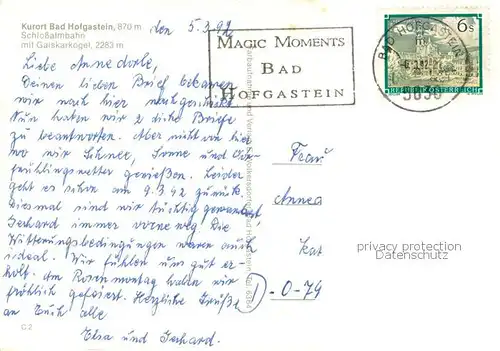 Kurort Bad Hofgastein, 870 m
Schloßalmbahn
mit Gaiskarkogel, 2283 m
den 5.3.92
MAGIC MOMENTS
BAD
HOFGASTEIN
BAD HOFGASTEIN
5630
6s
REPUBLIK ÖSTERREICH
Liebe Annedorle,
Deinen lieben Brief bekamen
wir nach hier nachgeschickt.
Nun haben wir 2 dicke Briefe
zu beantworten. Aber nicht von hier
wo wir Schnee, Sonne und Vor-
frühlingswetter genießen. Leider
geht es schon am 9.3.92 zurück.
Diesmal sind wir tüchtig gewandert,
Gerhard immer vorneweg. Die
Witterungsbedingungen waren auch
ideal. Wir fühlen uns gut er-
holt. Am Rosenmontag haben wir
fröhlich gefeiert. Herzliche Grüße
an Euch alle
Elsa und Gerhard.
Frau
Annea
Kat
O-79
privacy protection
Datenschutz
C 2